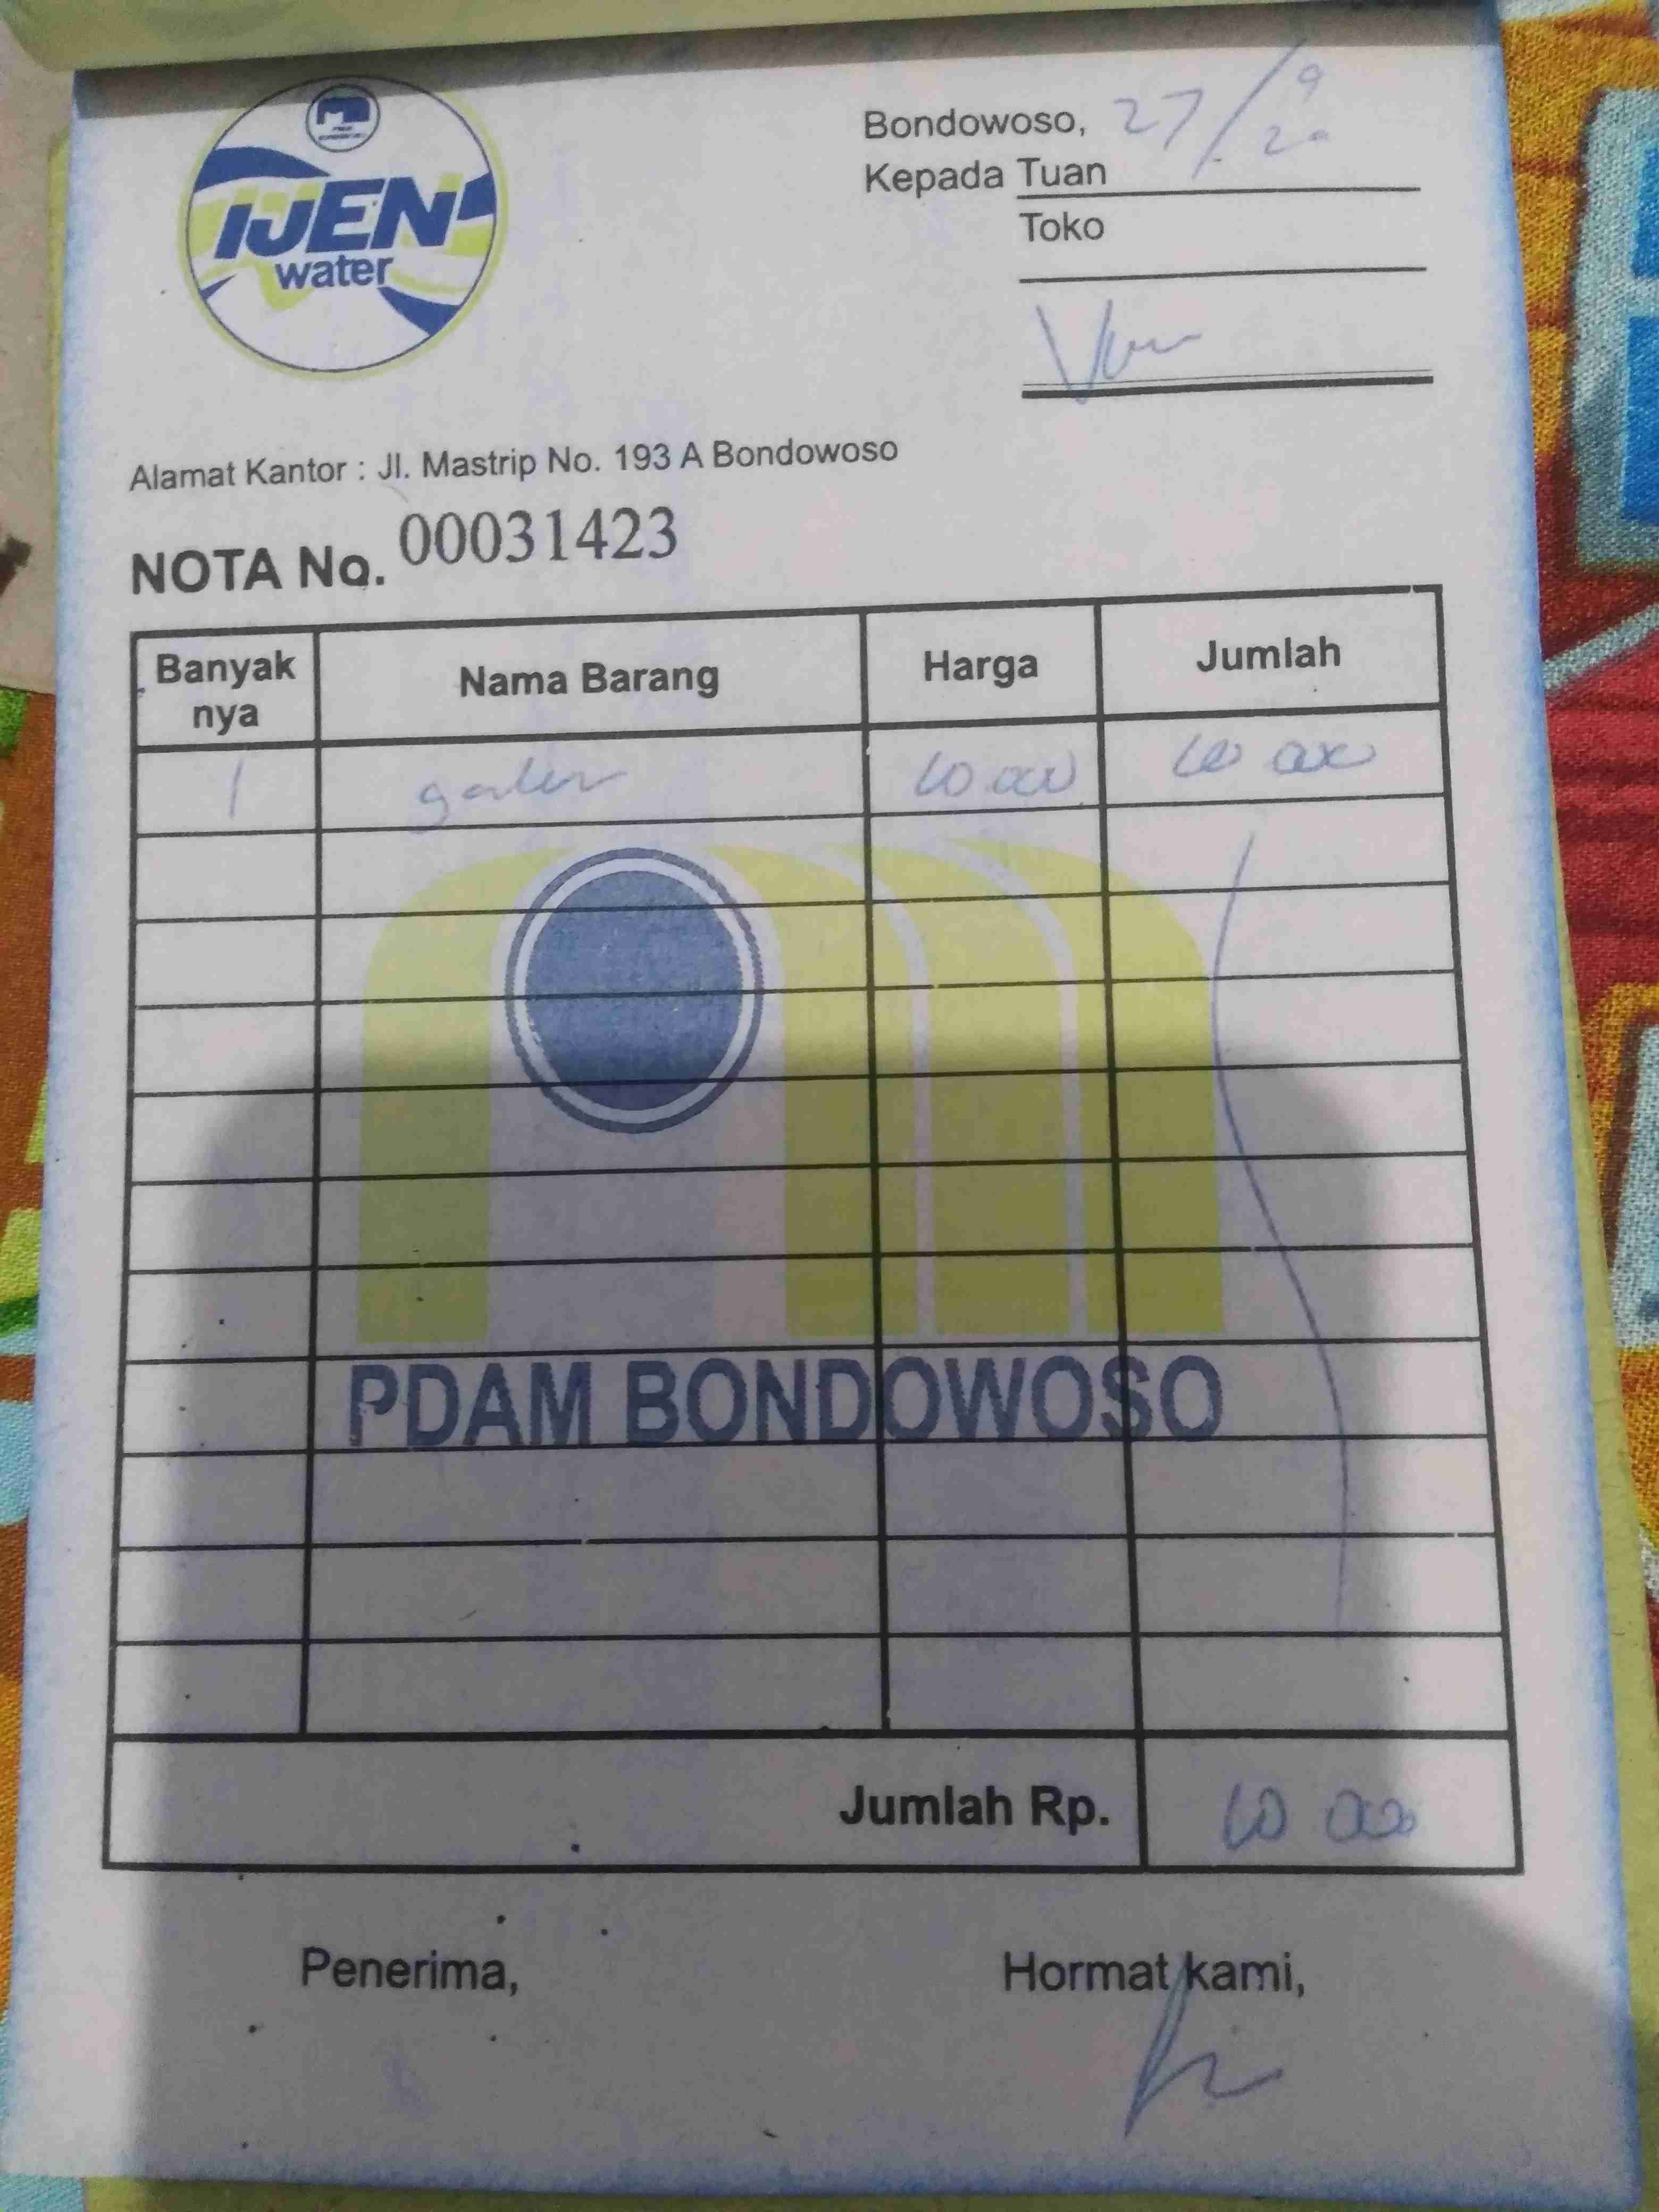 IJEN
water
Bondowoso, 27/9 20
Kepada Tuan
Toko
Alamat Kantor : Jl. Mastrip No. 193 A Bondowoso
NOTA No. 00031423
Banyak nya Nama Barang Harga Jumlah
1 10 000 10 000
PDAM BONDOWOSO
Jumlah Rp. 10 000
Penerima, Hormat kami,